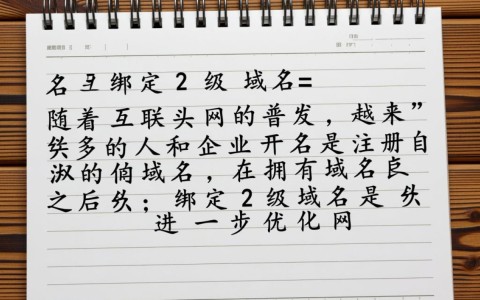 名彐绑定2级域名=
随着互联头网的普发，越来”
的人和企业开名是注册自
的域名，在拥有域名
之后；绑定2级域名是
进一步优化网